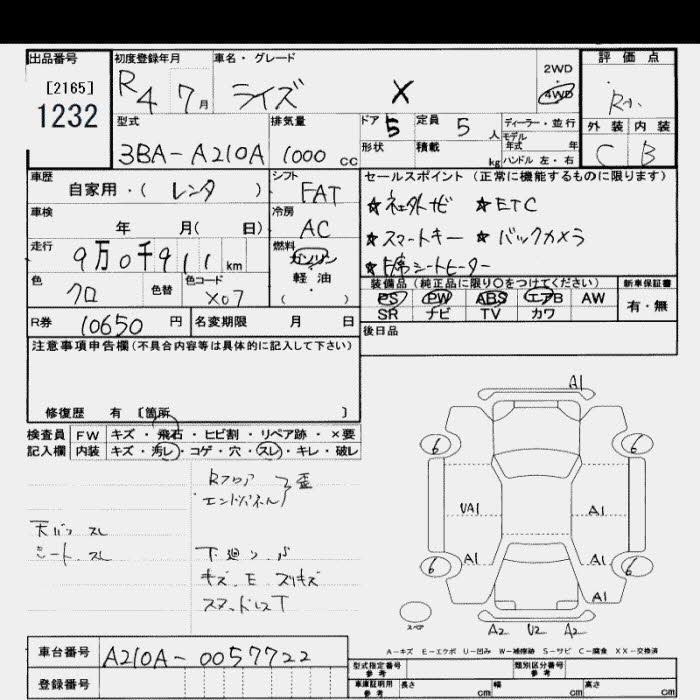 出品番号
[2165]
1232
初度登録年月
R4 7月
車名・グレード
ライズ X
2WD
4WD
評価点
外装 内装
C B
型式
3BA-A210A
排気量
1000 cc
ドア 5
定員 5 人
ディーラー・並行
モデル年式 年
形状
積載 kg
ハンドル 左・右
車歴
自家用・( レンタ )
シフト
FAT
車検
年 月( 日)
冷房
AC
走行
9万0千911 km
燃料
ガソリン
軽油
( ・ )
色
クロ
色替
色コード
X07
R券 10650 円
名変期限 月 日
セールスポイント (正常に機能するものに限ります)
★スマートキー ★バックカメラ
★ETC
シートヒーター
装備品(純正品に限り○をつけてください)
PS PW ABS エアB AW
SR ナビ TV カワ
新車保証書
有・無
後日品
注意事項申告欄(不具合内容等は具体的に記入して下さい)
修復歴 有 〔箇所 〕
検査員 FW キズ・飛石・ヒビ割・リペア跡・×要
記入欄 内装 キズ・汚レ・コゲ・穴・スレ・キレ・破レ
Rフロア
エンドパネル 歪
天バリ スレ
シート スレ
下廻り
キズ E スリキズ
スタッドレスT
A1
6 6
UA1 A1
A1 A1
6 6
スペア
A2 U2 A2
A-キズ E-エクボ U-凹み W-補修跡 S-サビ C-腐食 XX-交換済
車台番号 A210A-0057722
登録番号
型式指定番号 参考
類別区分番号 参考
車庫証明用 参考
長さ cm 幅 cm 高さ cm